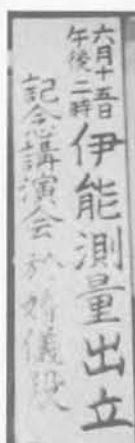 六月十五日
午後二時
伊能測量出立
記念講演会 於 斎儀殿